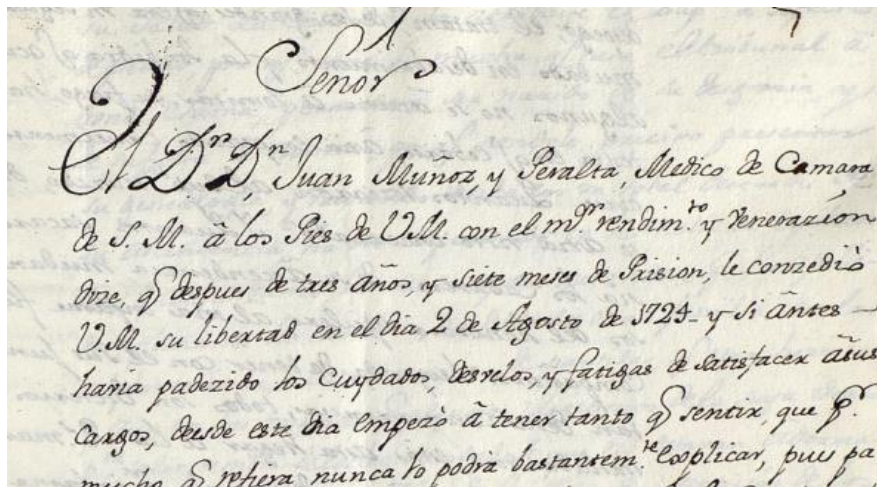 Señor
El D.r D.n Juan Muñoz, y Peralta, Medico de Camara
de S. M. â los Pies de V.M. con el m.or rendim.to y Venerazion
dize, q̃ despues de tres años, y siete meses de Prision, le conzediò
V.M. su libertad en el dia 2 de Agosto de 1724 - y si ântes
haria padezido los Cuydados, desvelos, y fatigas de satisfacer âsus
cargos, desde este dia empezò â tener tanto q̃ sentir, que p.r
mucho q̃ refiera nunca lo podrà bastantem.te Explicar, pues pa